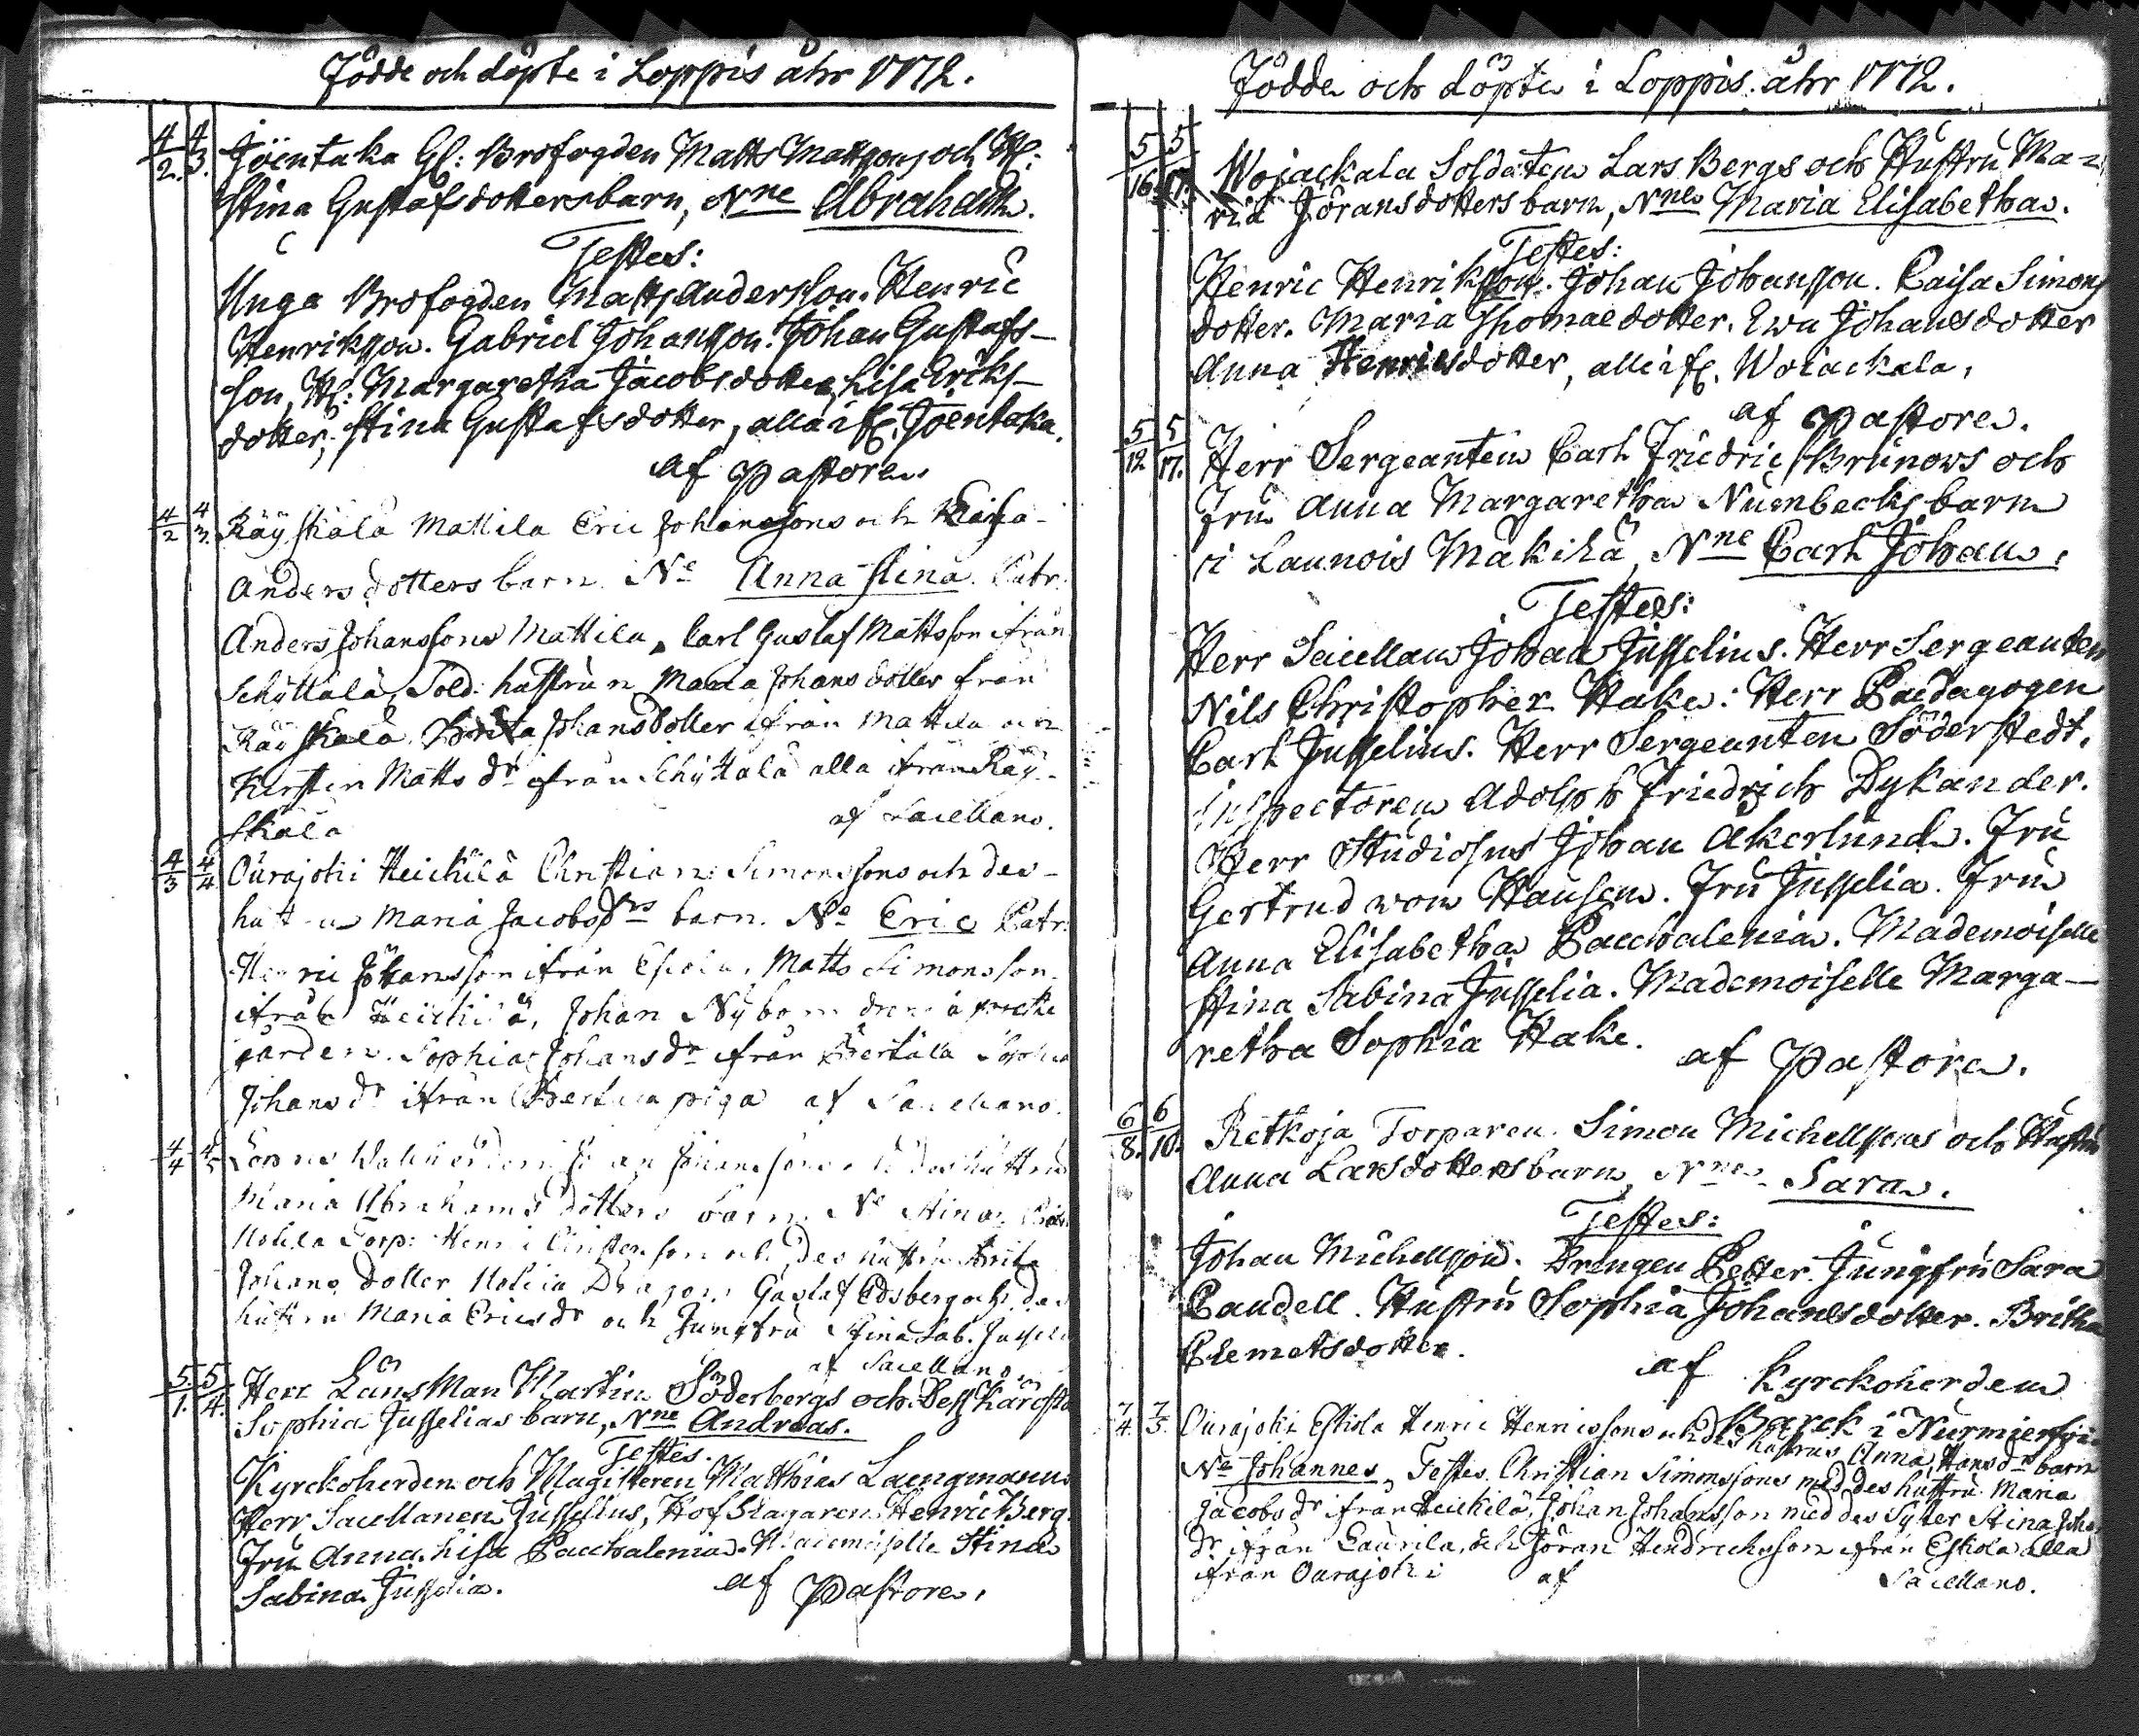 Födde och döpte i Loppis åhr 1772.
4/2. 4/3. Joentaka Gl: Brofogden Matts Mattssons och H:
Stina Gustafsdotters barn, Nne Abraham.
Testes:
Unga Brofogden Matts Andersson. Henric
Henriksson. Gabriel Johansson. Johan Gustafs-
son, H: Margaretha Jacobsdotter, Lisa Eriks-
dotter, Stina Gustafsdotter, alla ifr. Joentaka.
af Pastore.
4/2 4/3. Räyskälä Mattila Eric Johanssons och Caisa
Anders dotters barn. Ne Anna Stina. Patr.
Anders Johanssons Mattila, Carl Gustaf Mattsson ifrån
Schyttälä, Sold: hustrun Maria Johansdotter från
Räyskälä, Brita Johansdotter ifrån Mattila och
Kirstin Matts dr ifrån Schyttälä alla ifrån Räy-
skälä af Sacellano.
4/3 4/4 Ourajoki Heickilä Christian Simonssons och des
hustrus Maria Jacobsdrs barn. Ne Eric Patr.
Henric Johansson ifrån Eskola, Matts Simonsson
ifrån Heickilä, Johan Nybom dreng i
gården. Sophia Johansdr ifrån Perttula
Johansdr ifrån Perttula piga af Sacellano.
4/4 4/5 Johanssons och des hustrus
Maria Abrahams dotters barn Ne Stina,
Torp: Henric och des hustru Brita
Johans dotter Dragon Gustaf Edsberg och des
hustru Maria Ericsdr och Jungfru Stina Sab. Jusselia
af Sacellano
5/1. 5/4. Herr Länsman Martin Söderbergs och Dess Käresta
Sophia Jusselias barn, Nne Andreas.
Testes.
Kyrckoherden och Magisteren Matthias Laengmanns
Herr Sacellanen Jusselius, Hof Slagaren Henric Berg.
Fru Anna Lisa Pacchalenia. Mademoiselle Stina
Sabina Jusselia. af Pastore.
Födde och döpte i Loppis åhr 1772.
5/16. 5/17. Wojackala Soldaten Lars Bergs och Hustru Ma-
ria Jöransdotters barn, Nne Maria Elisabetha.
Testes:
Henric Henriksson. Johan Johansson. Caisa Simons
dotter. Maria Thomaedotter. Ewa Johansdotter
Anna Henricsdotter, alle ifr. Woiackala.
af Pastore.
5/12 5/17. Herr Sergeanten Carl Friedric Brunows och
Fru Anna Margaretha Numbecks barn
i Launois Mäkilä, Nne Carl Johan.
Testes:
Herr Sacellan Johan Jusselius. Herr Sergeanten
Nils Christopher Hake. Herr Paedagogen
Carl Jusselius. Herr Sergeanten Söderstedt.
Inspectoren Adolph Friedrich Dykander.
Herr Studiosus Johan Åkerlund. Fru
Gertrud von Hausen. Fru Jusselia. Fru
Anna Elisabetha Pacchalenia. Mademoiselle
Stina Sabina Jusselia. Mademoiselle Marga-
retha Sophia Hake. af Pastore.
6/8. 6/10. Retkoja Torparen Simon Michellssons och Hustru
Anna Larsdotters barn, Nne Sara.
Testes:
Johan Michellsson. Drengen Petter. Jungfru Sara
Candell. Hustru Sophia Johansdotter. Britha
Clemetsdotter. af Kyrckoherden
Barck i Nurmierfvi
7/4. 7/5. Ourajoki Eskola Henric Henricssons och des hustrus Anna Hansdr barn
Ne Johannes, Testes. Christian Simmssons med des hustru Maria
Jacobsdr ifrån Heickilä, Johan Johansson med des Syster Stina Johs
dr ifrån Laurila, och Jöran Hendrichsson ifrån Eskola alla
ifrån Ourajoki af Sacellano.